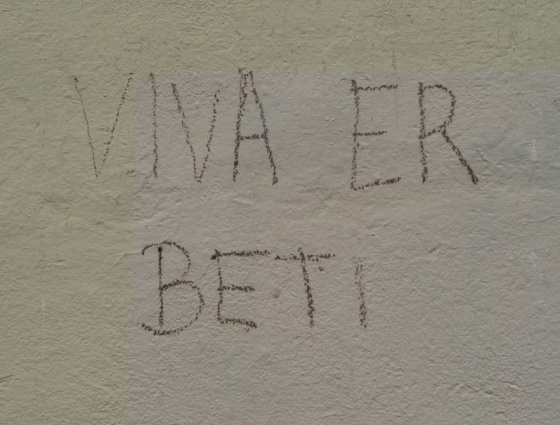 VIVA ER
BETI